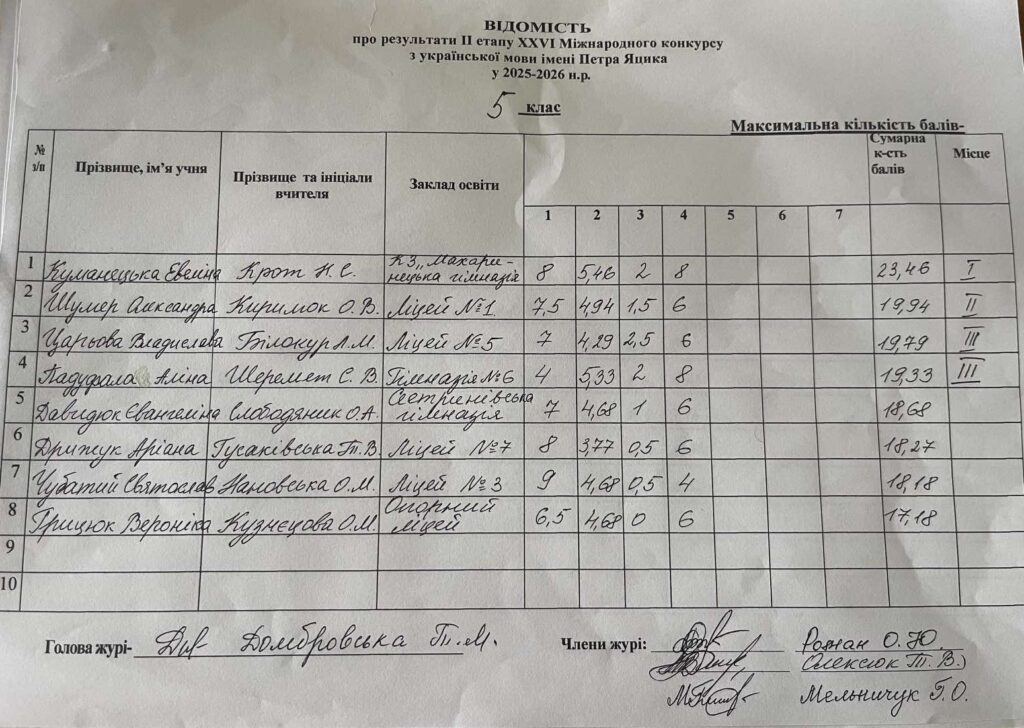 ВІДОМІСТЬ
про результати ІІ етапу XXVI Міжнародного конкурсу
з української мови імені Петра Яцика
у 2025-2026 н.р.
5 клас
Максимальна кількість балів-
№ з/п Прізвище, ім'я учня Прізвище та ініціали вчителя Заклад освіти Сумарна к-сть балів Місце
1 2 3 4 5 6 7
1 Куманецька Евеліна Крот Н. Є. КЗ „Махаринецька гімназія 8 5,46 2 8 23,46 I
2 Шумер Олександра Киримок О. В. Ліцей №1 7,5 4,94 1,5 6 19,94 II
3 Царьова Владислава Білокур Л.М. Ліцей №5 7 4,29 2,5 6 19,79 III
4 Падуфала Аліна Шеремет С. В. Гімназія №6 4 5,33 2 8 19,33 III
5 Давидюк Євангеліна Слободяник О.А. Сестринівська гімназія 7 4,68 1 6 18,68
6 Дрижук Аріана Гусаківська Т.В. Ліцей №7 8 3,77 0,5 6 18,27
7 Чубатий Святослав Нановська О.М. Ліцей №3 9 4,68 0,5 4 18,18
8 Грицюк Вероніка Кузнєцова О.М. Опорний ліцей 6,5 4,68 0 6 17,18
9
10
Голова журі- Домбровська Т.М. Члени журі: Рожан О.Ю.
Олексюк Т.В.)
Мельничук Г.О.